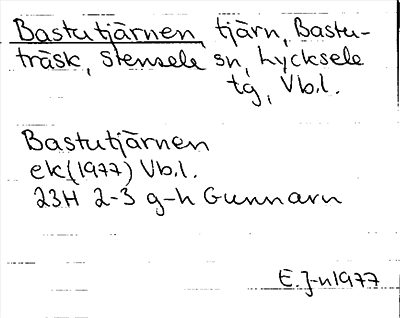 Bastutjärnen, tjärn, Bastu-
träsk, Stensele sn, Lycksele
tg, Vb.l.
Bastutjärnen
ek (1977) Vb.l.
23H 2-3 g-h Gunnarn
E. J-n 1977